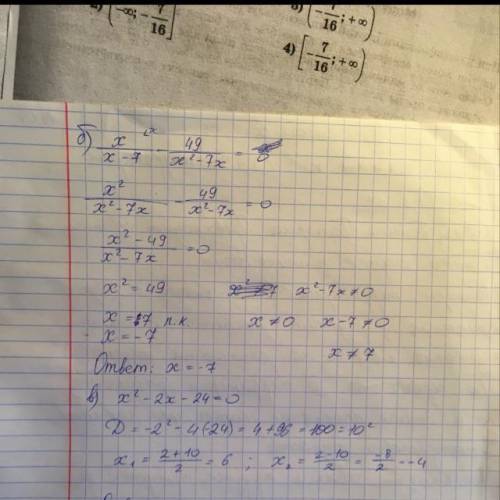 2) (-∞; -7/16]
3) (-7/16; +∞)
4) [-7/16; +∞)
б) x/(x-7) - 49/(x²-7x) = 0
x²/(x²-7x) - 49/(x²-7x) = 0
(x²-49)/(x²-7x) = 0
x² = 49 x²-7x≠0
x = 7 п.к. x≠0 x-7≠0
x = -7 x≠7
Ответ: x = -7
в) x²-2x-24=0
D = -2²-4(-24) = 4+96 = 100 = 10²
x₁ = (2+10)/2 = 6 ; x₂ = (2-10)/2 = -8/2 = -4